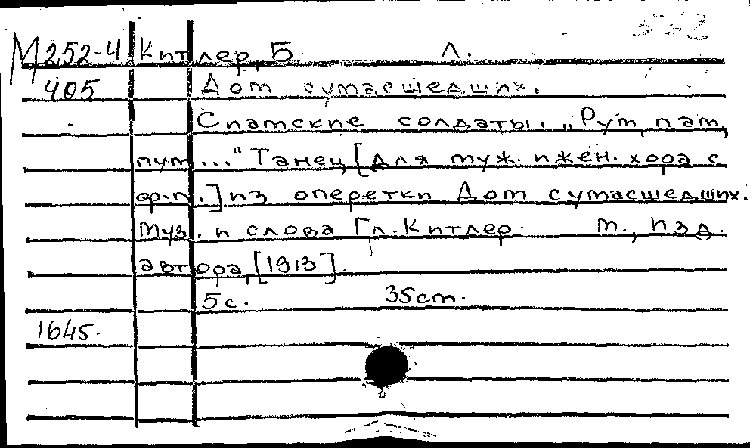 М252-4 Китлер, Б Л.
405 Дом сумасшедших.
Сиамские солдаты. „Рум, пам,
пум..." Танец [для муж. и жен. хора с
ф-п.] из оперетки Дом сумасшедших.
Муз. и слова Гл. Китлер. М., Изд.
автора, [1913].
5 с. 35 cm.
1645.